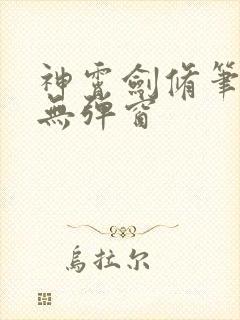 神霄劍脩筆
無彈窗
烏拉尔